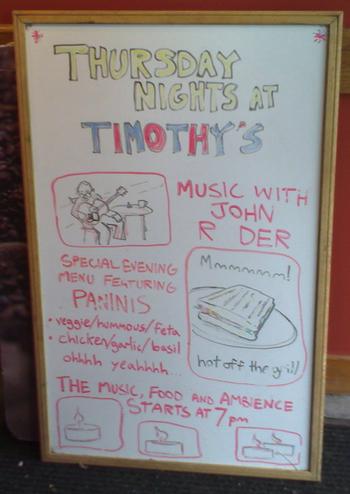 THURSDAY
NIGHTS AT
TIMOTHY'S
MUSIC WITH
JOHN
R DER
SPECIAL EVENING
MENU FEATURING
PANINIS
• veggie/hummous/feta
• chicken/garlic/basil
ohhhh yeahhhh...
Mmmmmmm!
hot off the grill
THE MUSIC, FOOD AND AMBIENCE
STARTS AT 7pm